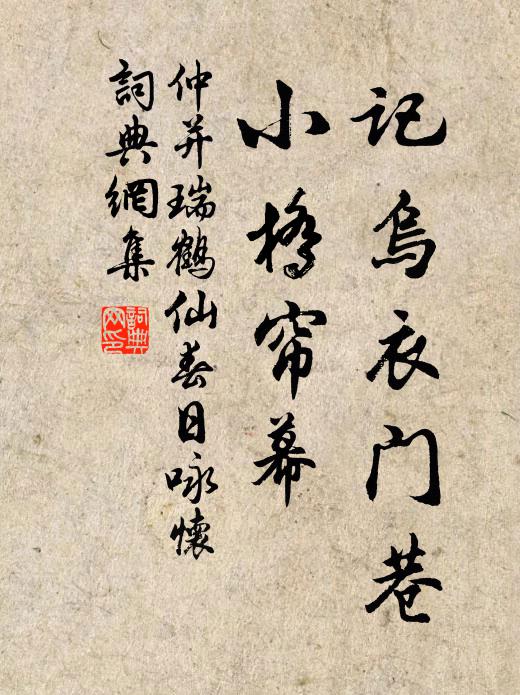 记乌衣门巷
小桥帘幕
仲并瑞鹤仙春日咏怀
词典网集
词典网印